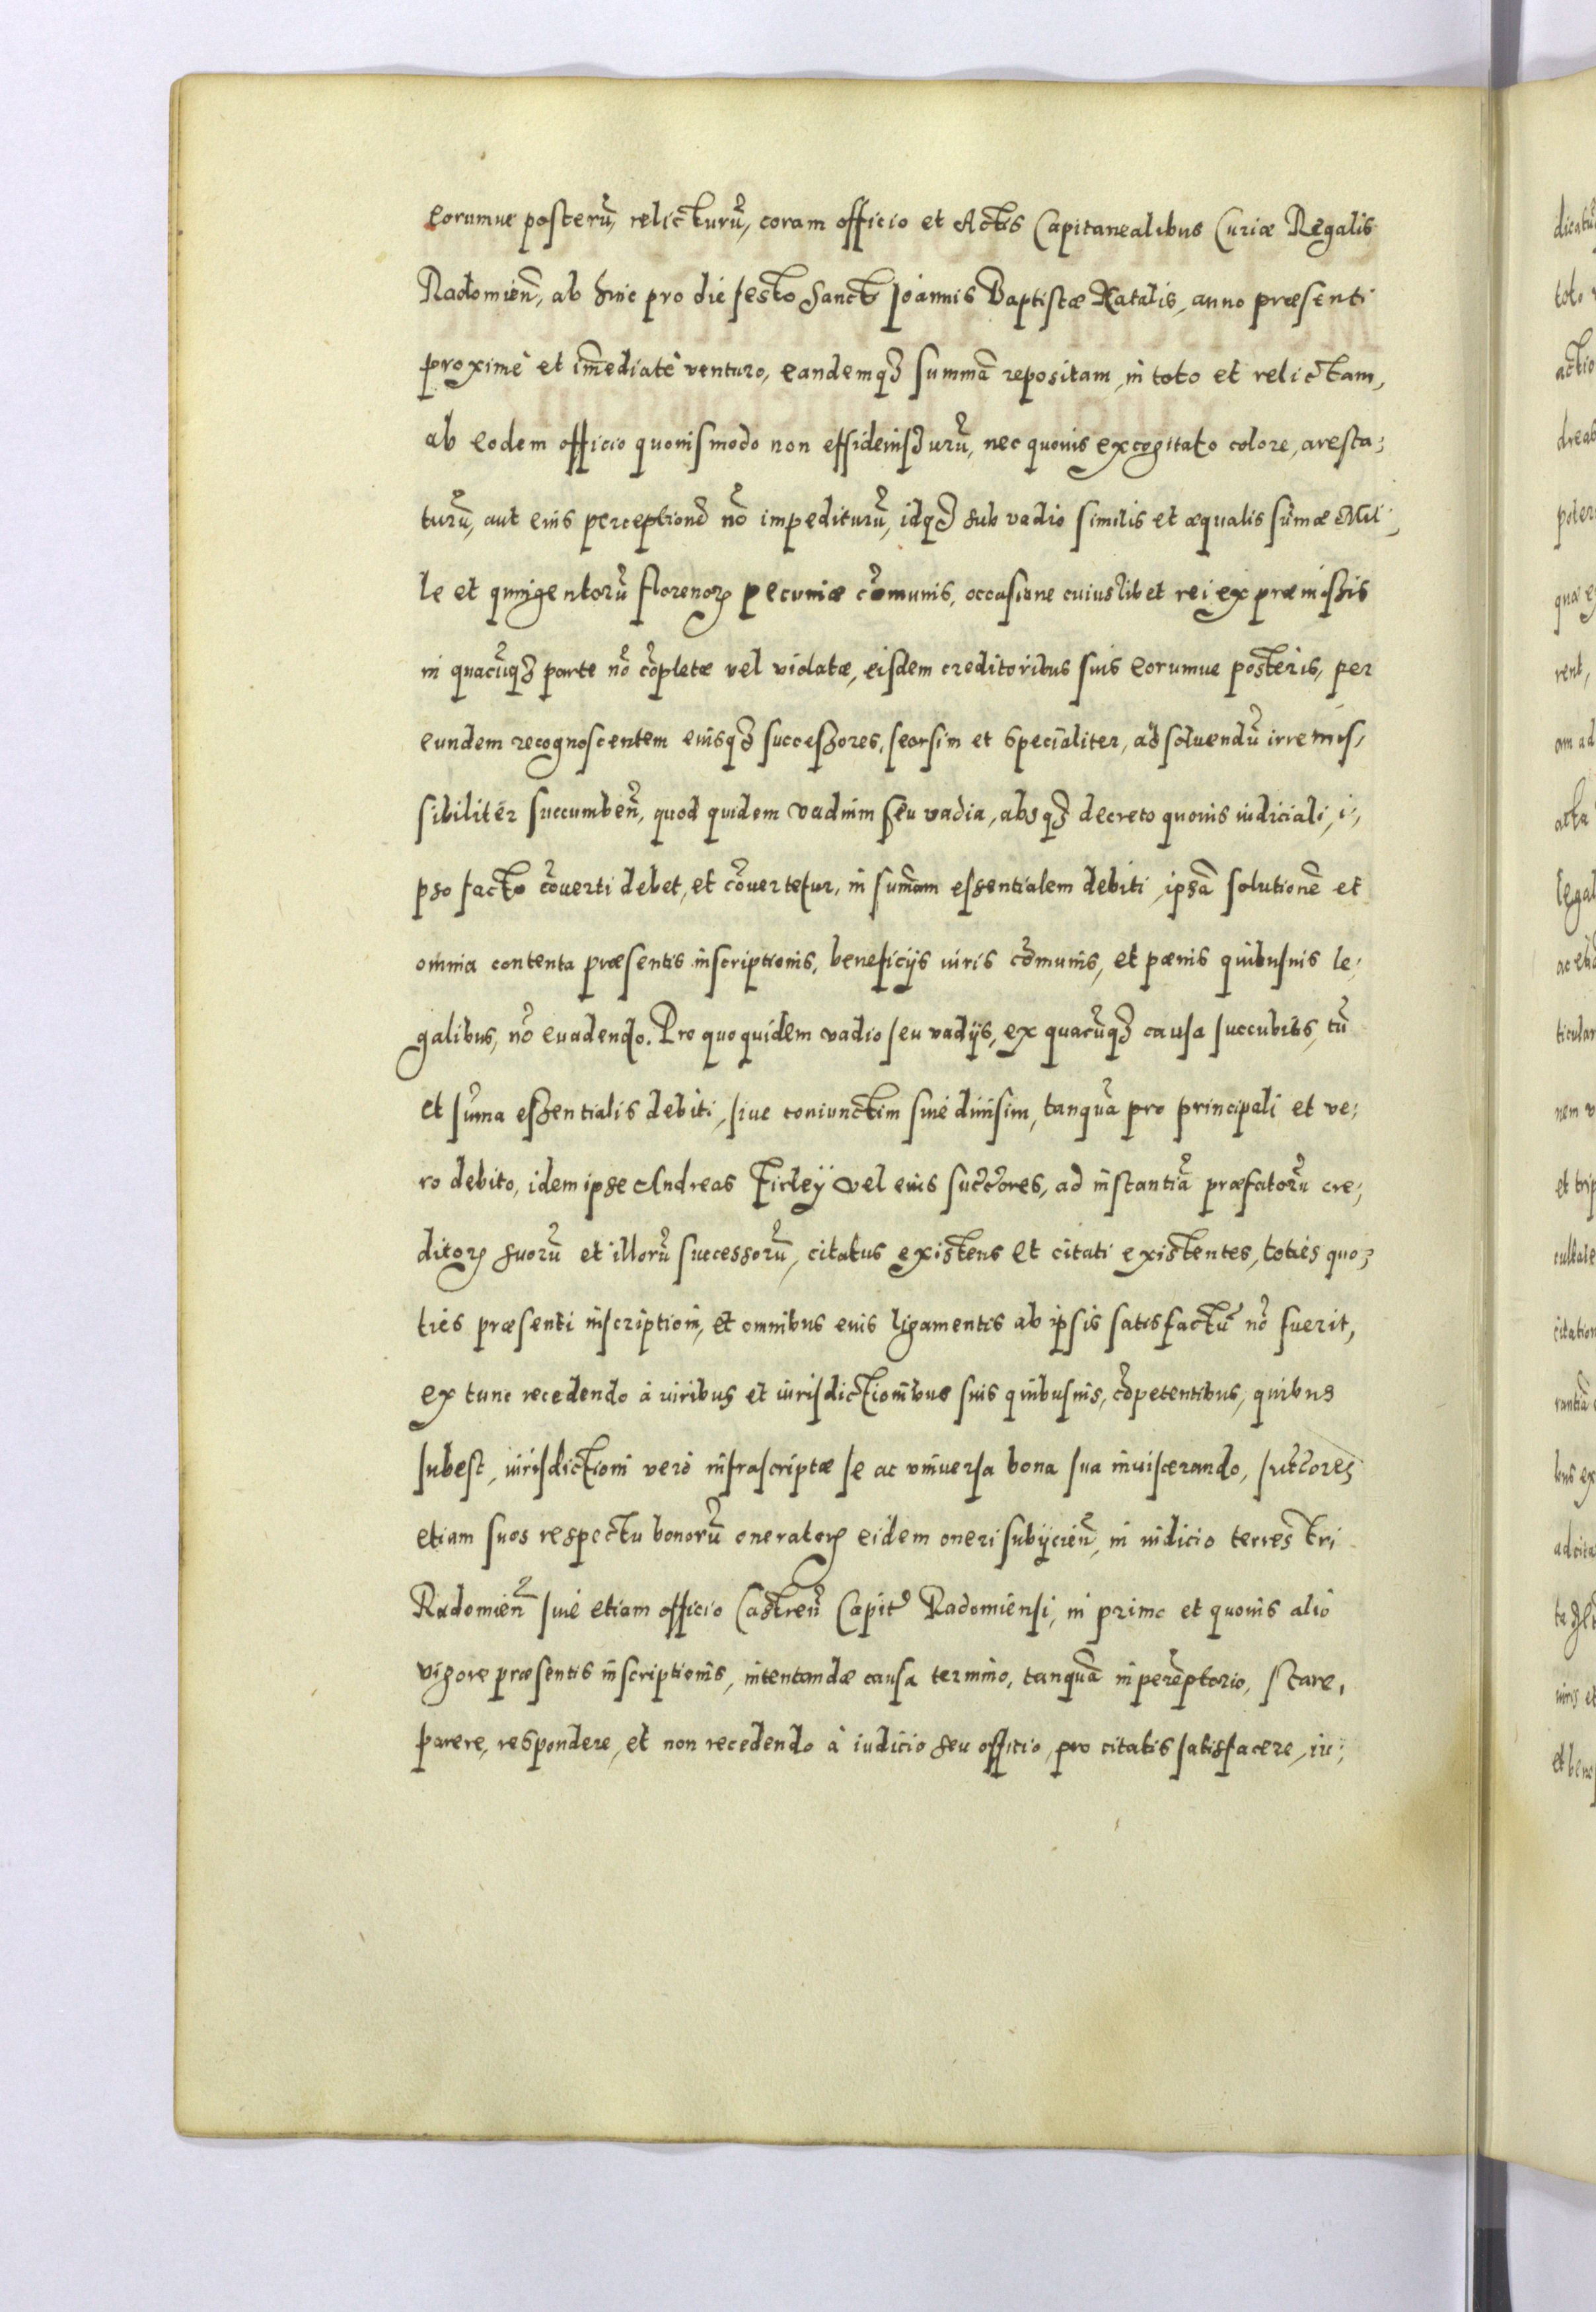 eorumue posterũ, relicturũ, coram officio et Actis Capitanealibus Curiæ Regalis
Radomieñ, ab hinc pro die festo Sancti Joannis Baptistæ Natalis, anno præsenti
proximè et im̃ediatè venturo, eandemq3 summã repositam, in toto et relictam,
ab eodem officio quouismodo non, nec quouis excogitato colore, aresta;
turũ, aut eius perceptionẽ nõ impediturũ, idq3 sub vadio similis et æqualis sum̃æ Mil;
le et quingentorũ florenorꝝ pecuniæ cõmunis, occasione cuiuslibet rei ex præmissis
in quacũq3 parte nõ cõpletæ vel violatæ, eisdem creditoribus suis eorumue posteris, per
eundem recognoscentem eiusq3 successores, seorsim et specialiter, ad soluendũ irremis,
sibiliter succumbeñ, quod quidem vadium seu vadia, absq3 decreto quouis iudiciali, i,
pso facto cõuerti debet, et cõuertetur, in sum̃am essentialem debiti, ipsã solutionẽ et
omnia contenta præsentis inscriptionis, beneficijs iuris cõmunis, et pænis quibusuis le;
galibus, nõ euadendo. Pro quoquidem vadio seu vadijs, ex quacũq3 causa succubitis, tũ
et sum̃a essentialis debiti, siue coniunctim siue diuisim, tanquã pro principali et ve;
ro debito, idem ipse Andreas Firleÿ vel eius suc̃c̃ores, ad instantiã præfatorũ cre;
ditorꝝ suorũ et illorũ successorũ, citatus existens et citati existentes, toties quo;
ties præsenti inscriptioni, et omnibus euis ligamentis ab ipsis satisfactũ nõ fuerit,
ex tunc recedendo à iuribus et iurisdictionibus suis quibusuis, cõpetentibus, quibus
subest, iurisdictioni verò infrascriptæ se ac vniuersa bona sua inuiscerando, suc̃c̃ores
etiam suos respectu bonorũ oneratorꝝ eidem oneri subijcieñ, in iudicio terrestri
Radomieñ siuè etiam officio Castreñ Capit̃ Radomiensi, in primo et quouis alio
vigore præsentis inscriptionis, intentandæ causa termino, tanquã in perẽptorio, stare,
parere, respondere, et non recedendo à iudicio seu officio, pro citatis satisfacere, iu;